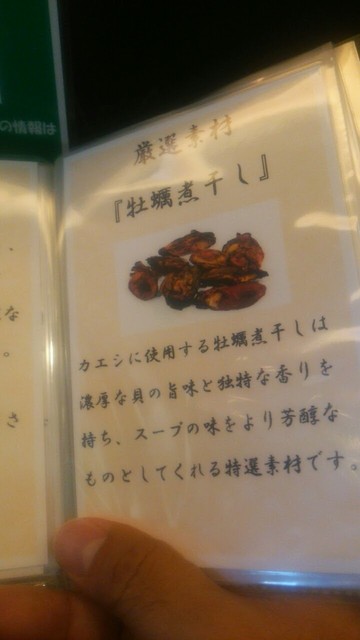 の情報は
厳選素材
『牡蠣煮干し』
カエシに使用する牡蠣煮干しは
濃厚な貝の旨味と独特な香りを
持ち、スープの味をより芳醇な
ものとしてくれる特選素材です。
、
な
。
さ